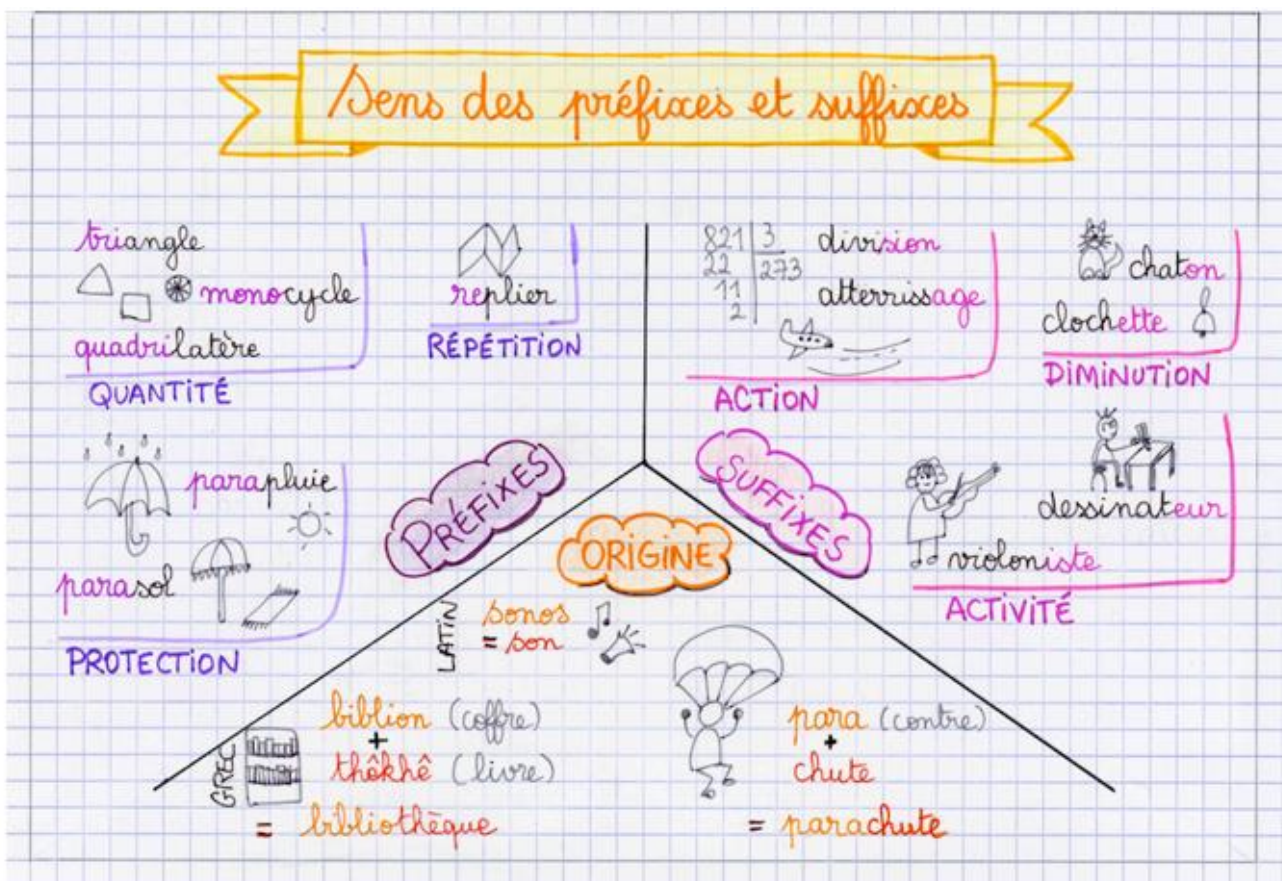 Sens des préfixes et suffixes
triangle
monocycle
quadrilatère
QUANTITÉ
replier
RÉPÉTITION
parapluie
parasol
PROTECTION
PRÉFIXES
821 3
22 273
11
2
division
atterrissage
ACTION
chaton
clochette
DIMINUTION
dessinateur
violoniste
ACTIVITÉ
SUFFIXES
ORIGINE
LATIN
sonos
= son
GREC
biblion (coffre)
+
thêkhê (livre)
= bibliothèque
para (contre)
+
chute
= parachute